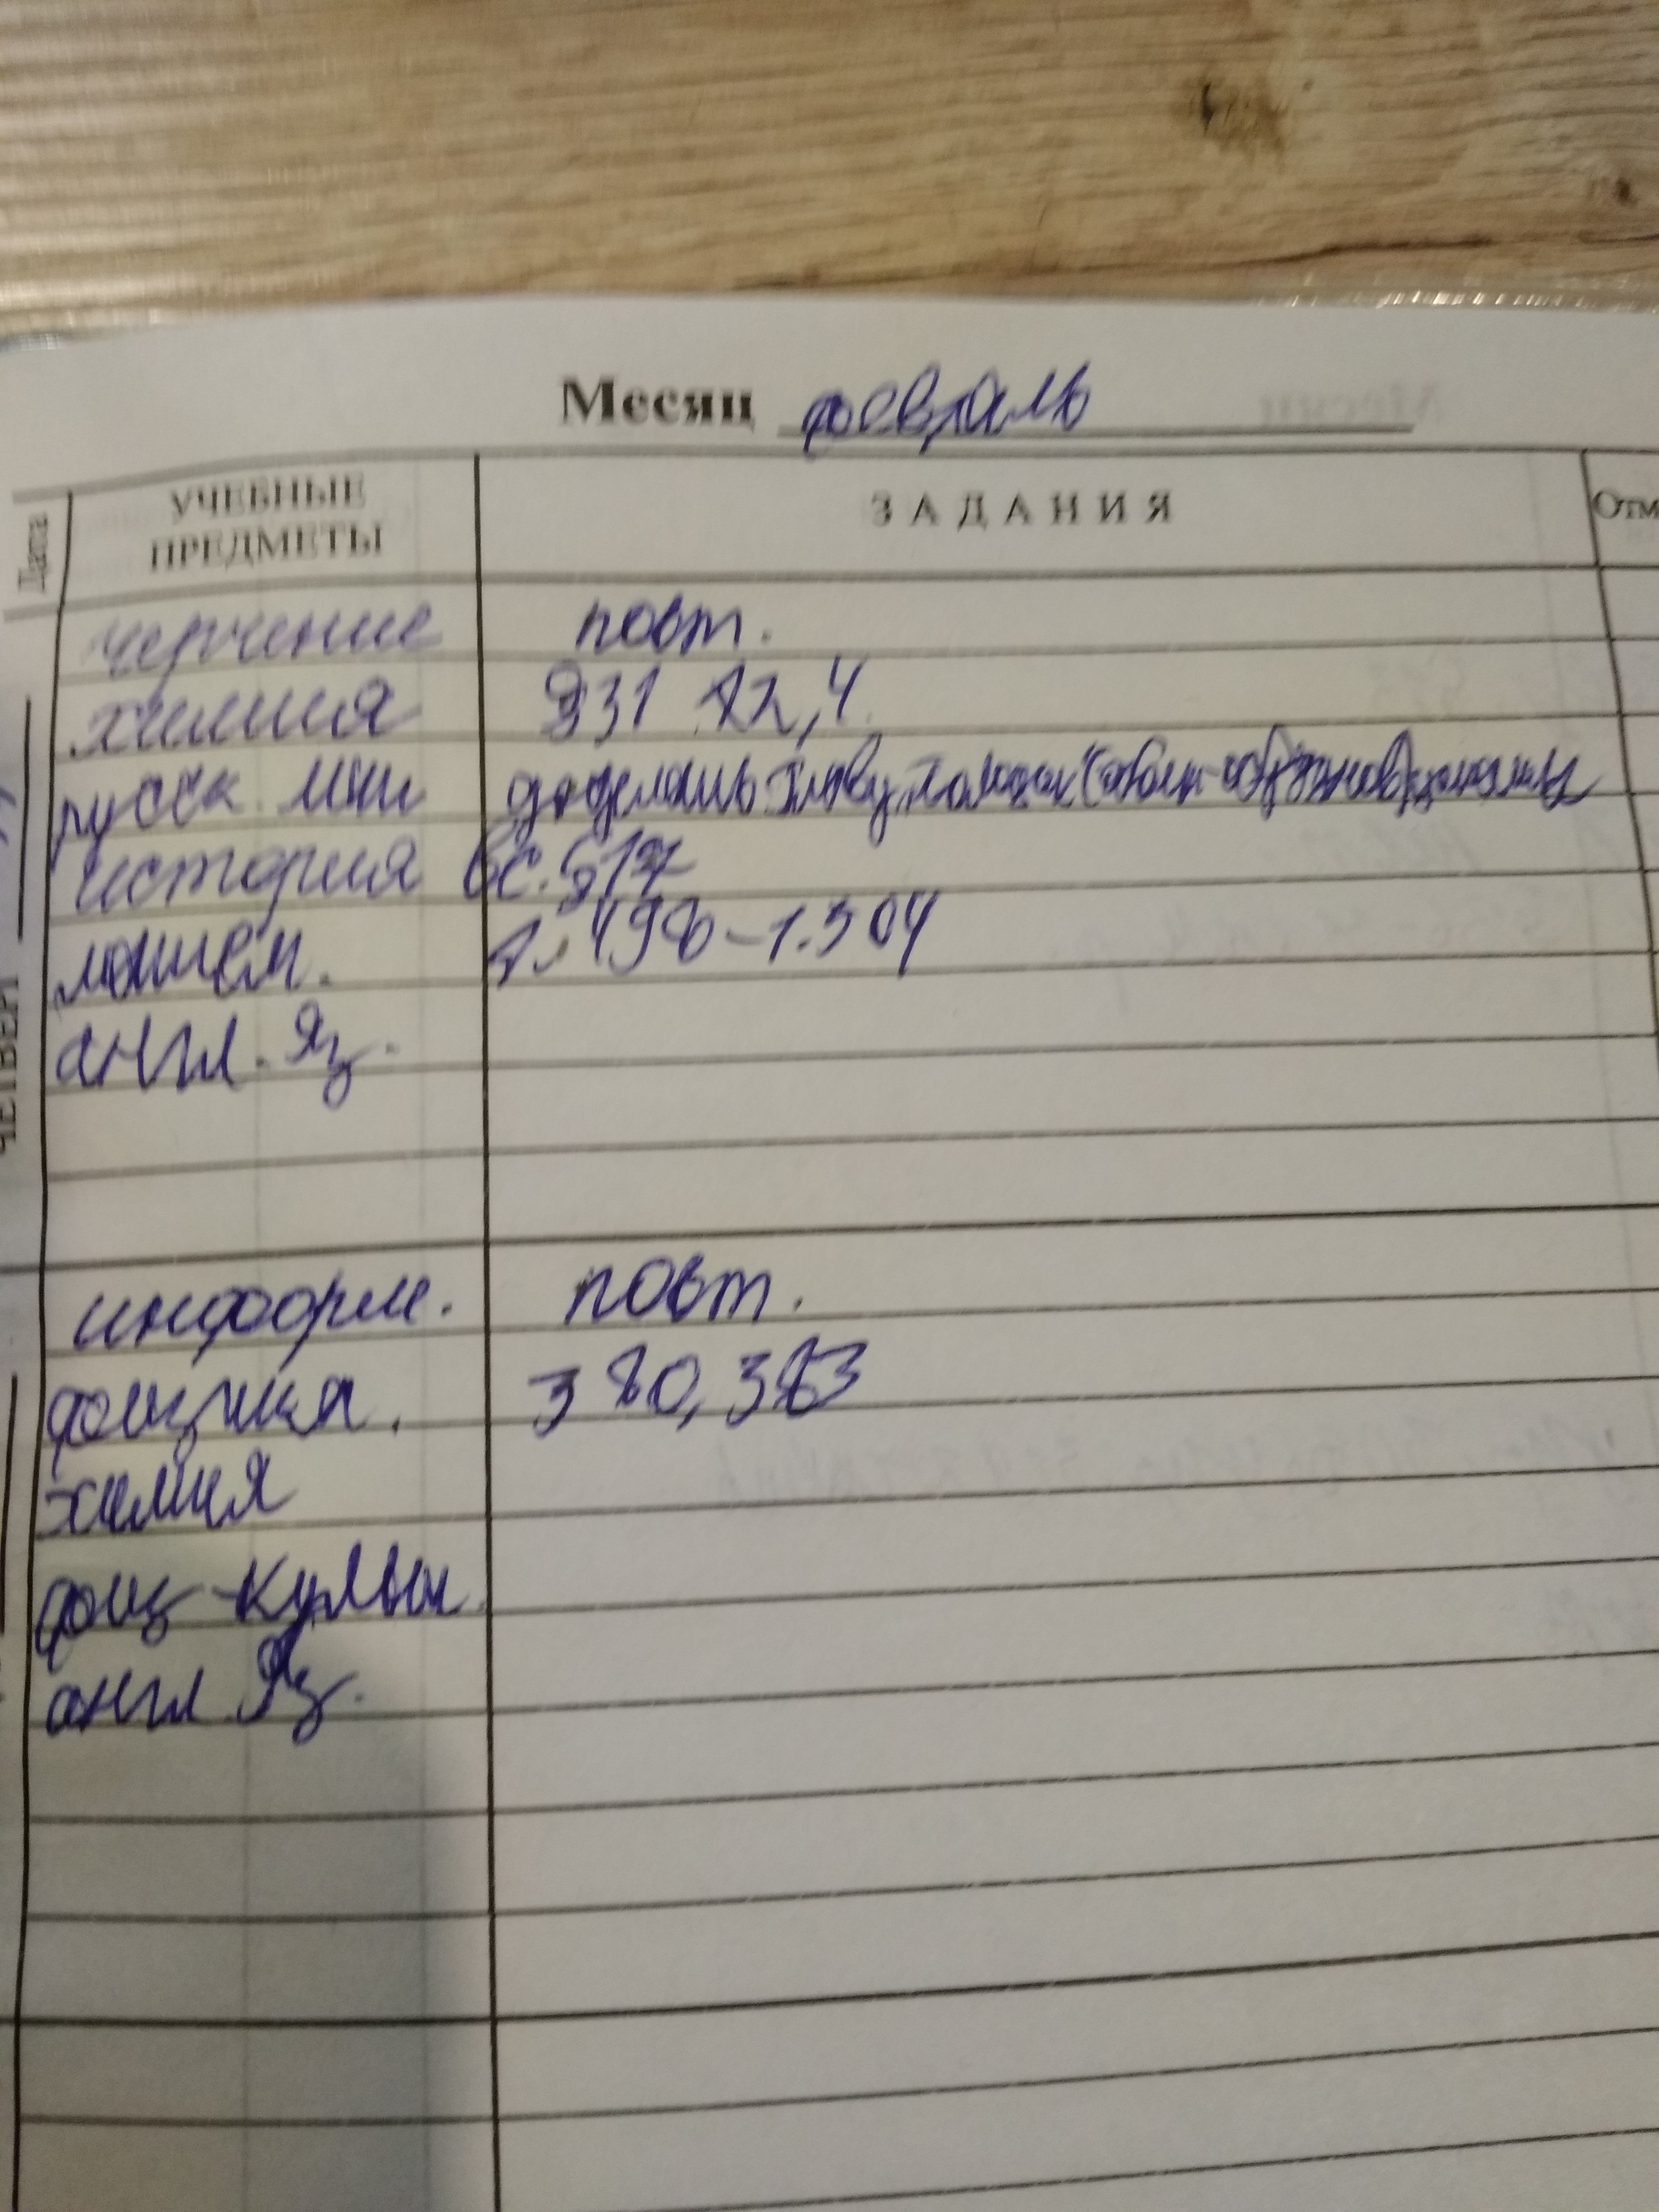 Месяц февраль
Дата УЧЕБНЫЕ ПРЕДМЕТЫ ЗАДАНИЯ Отм
черчение повт.
химия §31 12,4
русск лит доделать главу,
история вс. §17
матем. 1.498-1.504
англ. яз.
информ. повт.
физика. 380, 383
химия
физ-культ.
англ яз.